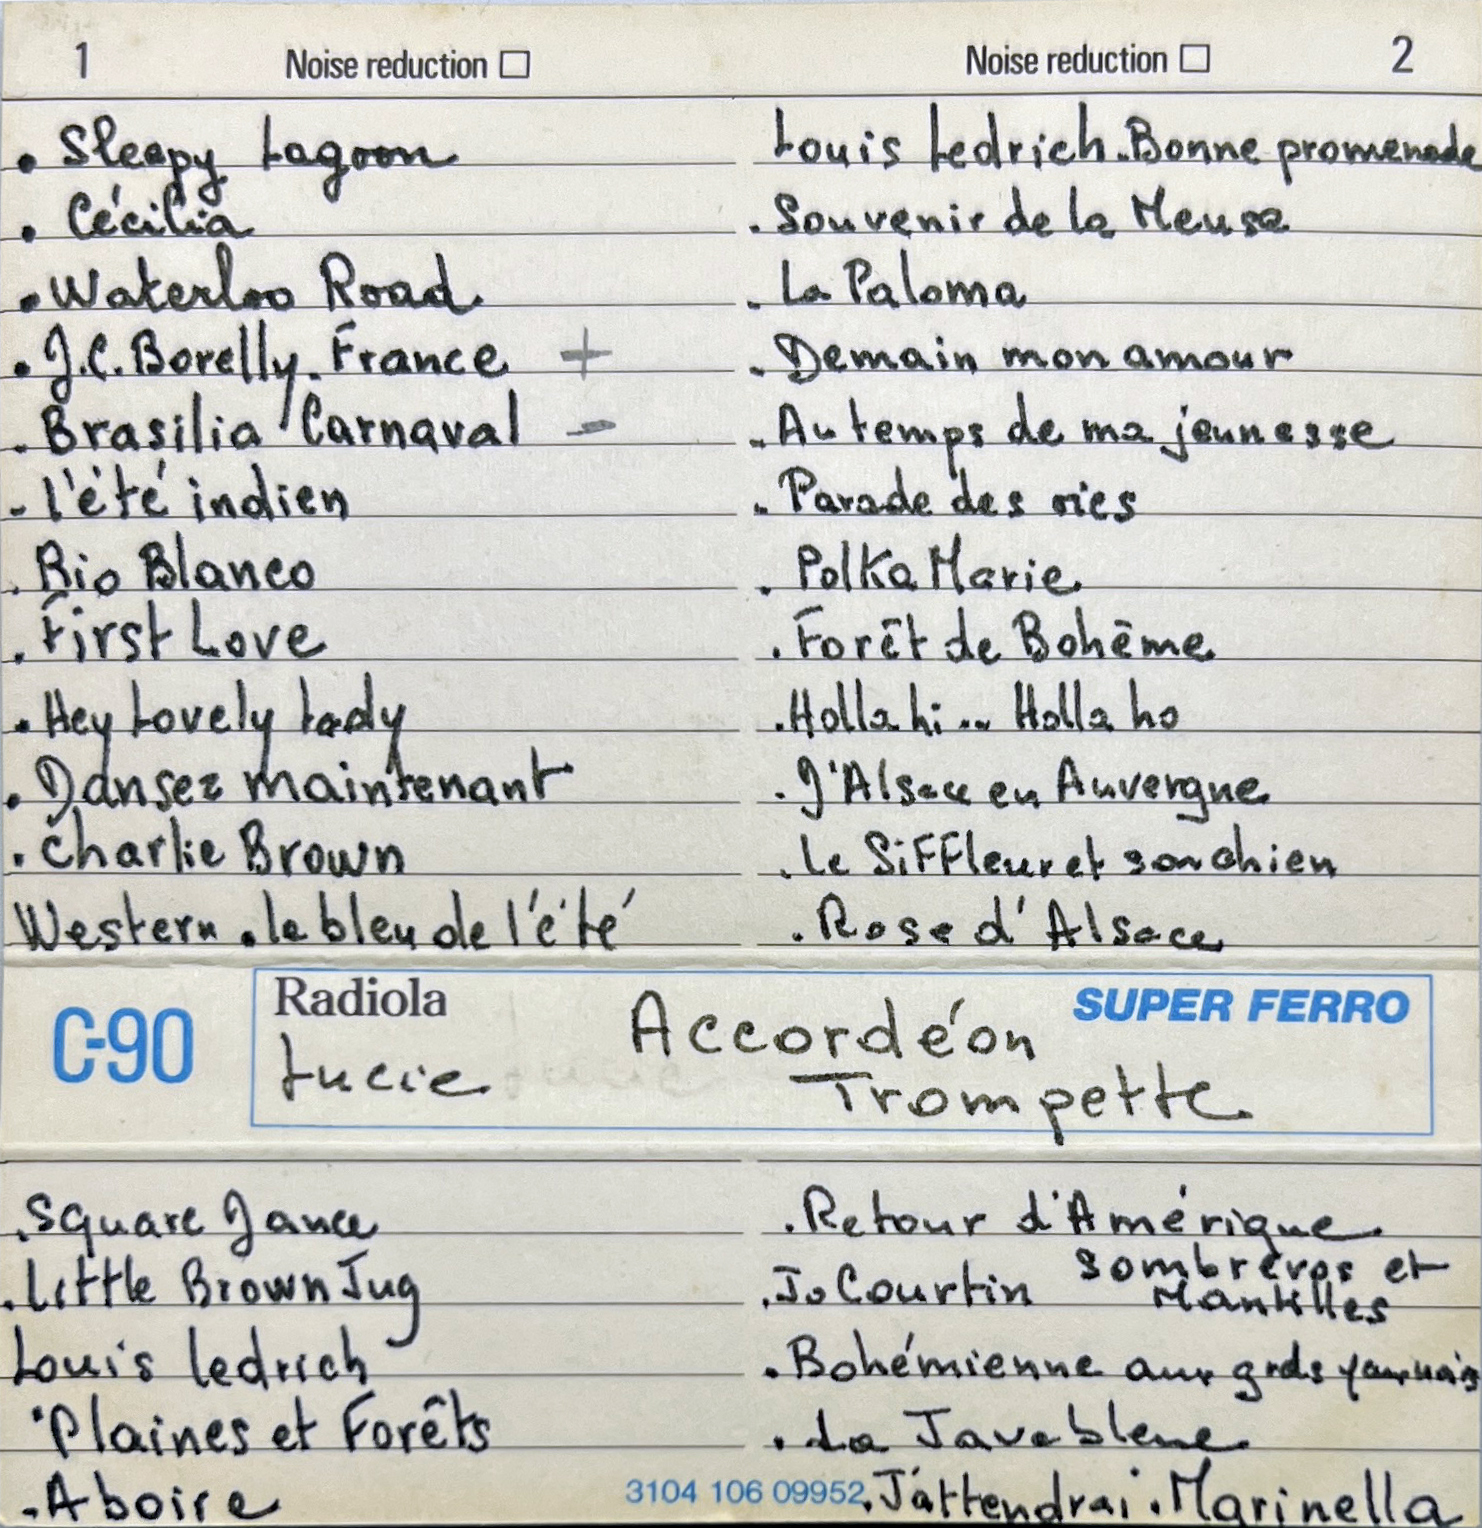 1 Noise reduction
. Sleepy Lagoon
. Cécilia
. Waterloo Road
. J.C. Borelly. France +
. Brasilia Carnaval -
- l'été indien
. Rio Blanco
. First Love
. Hey Lovely Lady
. Dansez maintenant
. Charlie Brown
Western . le bleu de l'été
Noise reduction 2
Louis Ledrich. Bonne promenade
. Souvenir de la Meuse
. La Paloma
. Demain mon amour
. Au temps de ma jeunesse
. Parade des
. Polka Marie
. Forêt de Bohême
. Holla hi .. Holla ho
. D'Alsace en Auvergne
. Le Siffleur et son chien
. Rose d'Alsace
C-90
Radiola
SUPER FERRO
Lucie
Accordéon
Trompette
. Square Dance
. Little Brown Jug
Louis Ledrich
. Plaines et Forêts
. A boire
. Retour d'Amérique
. Jo Courtin Sombreros et
Mantilles
. Bohémienne aux grds yeux noirs
. La Java bleue
3104 106 09952
. J'attendrai . Marinella